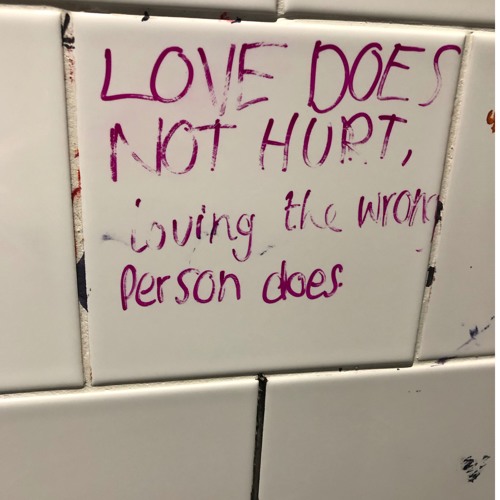 LOVE DOES
NOT HURT,
loving the wrong
Person does.